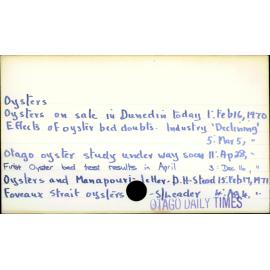 Oysters
Oysters on sale in Dunedin today 1. Feb 16, 1970
Effects of oyster bed doubts. Industry 'Declining'
5. Mar 5, "
Otago oyster study under way soon 11. Ap 28, "
First Oyster bed test results in April 3. Dec 16, "
Oysters and Manapouri-letter-D.H. Stead 15. Feb 17, 1971
Foveaux Strait oysters -S/Leader 4. Ag 4, "
OTAGO DAILY TIMES